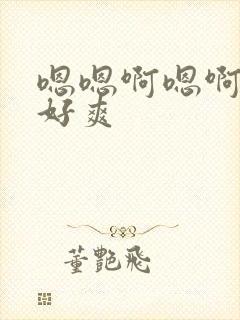 嗯嗯啊嗯啊
好爽
董艷飛